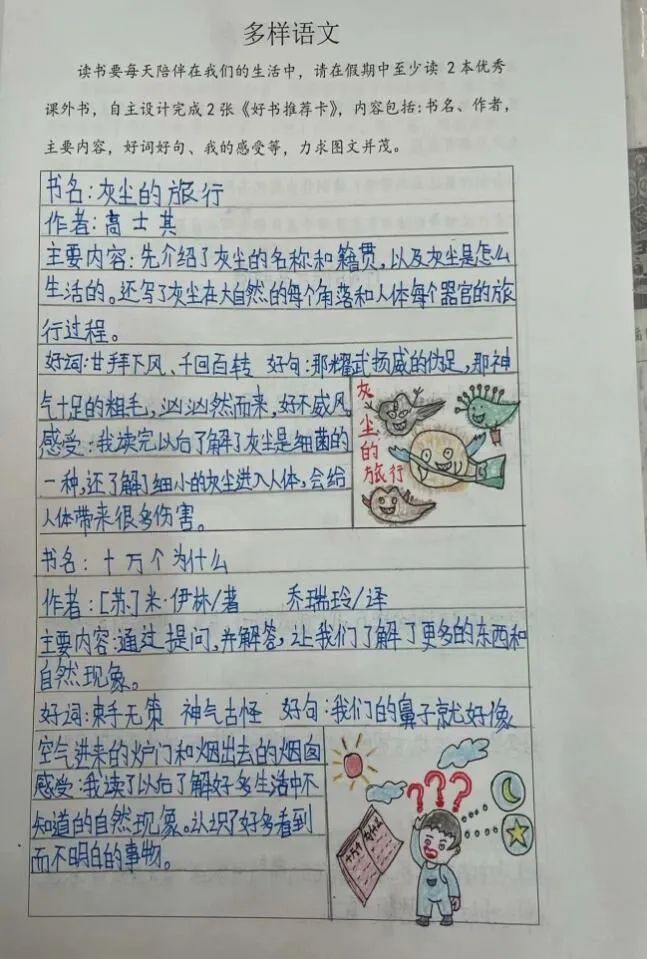 多样语文
读书要每天陪伴在我们的生活中，请在假期中至少读 2 本优秀
课外书，自主设计完成 2 张《好书推荐卡》，内容包括:书名、作者，
主要内容，好词好句、我的感受等，力求图文并茂。
书名:灰尘的旅行
作者:高士其
主要内容:先介绍了灰尘的名称和籍贯,以及灰尘是怎么
生活的。还写了灰尘在大自然的每个角落和人体每个器官的旅
行过程。
好词:甘拜下风、千回百转 好句:那耀武扬威的伪足,那神
气十足的粗毛,汹汹然而来,好不威风
感受:我读完以后了解了灰尘是细菌的
一种,还了解了细小的灰尘进入人体,会给
人体带来很多伤害。
灰尘的旅行
书名:十万个为什么
作者:[苏]米·伊林/著 乔瑞玲/译
主要内容:通过提问,并解答,让我们了解了更多的东西和
自然现象。
好词:束手无策 神气古怪 好句:我们的鼻子就好像
空气进来的炉门和烟出去的烟囱
感受:我读了以后了解好多生活中不
知道的自然现象。认识了好多看到
而不明白的事物。
???
十万个为什么